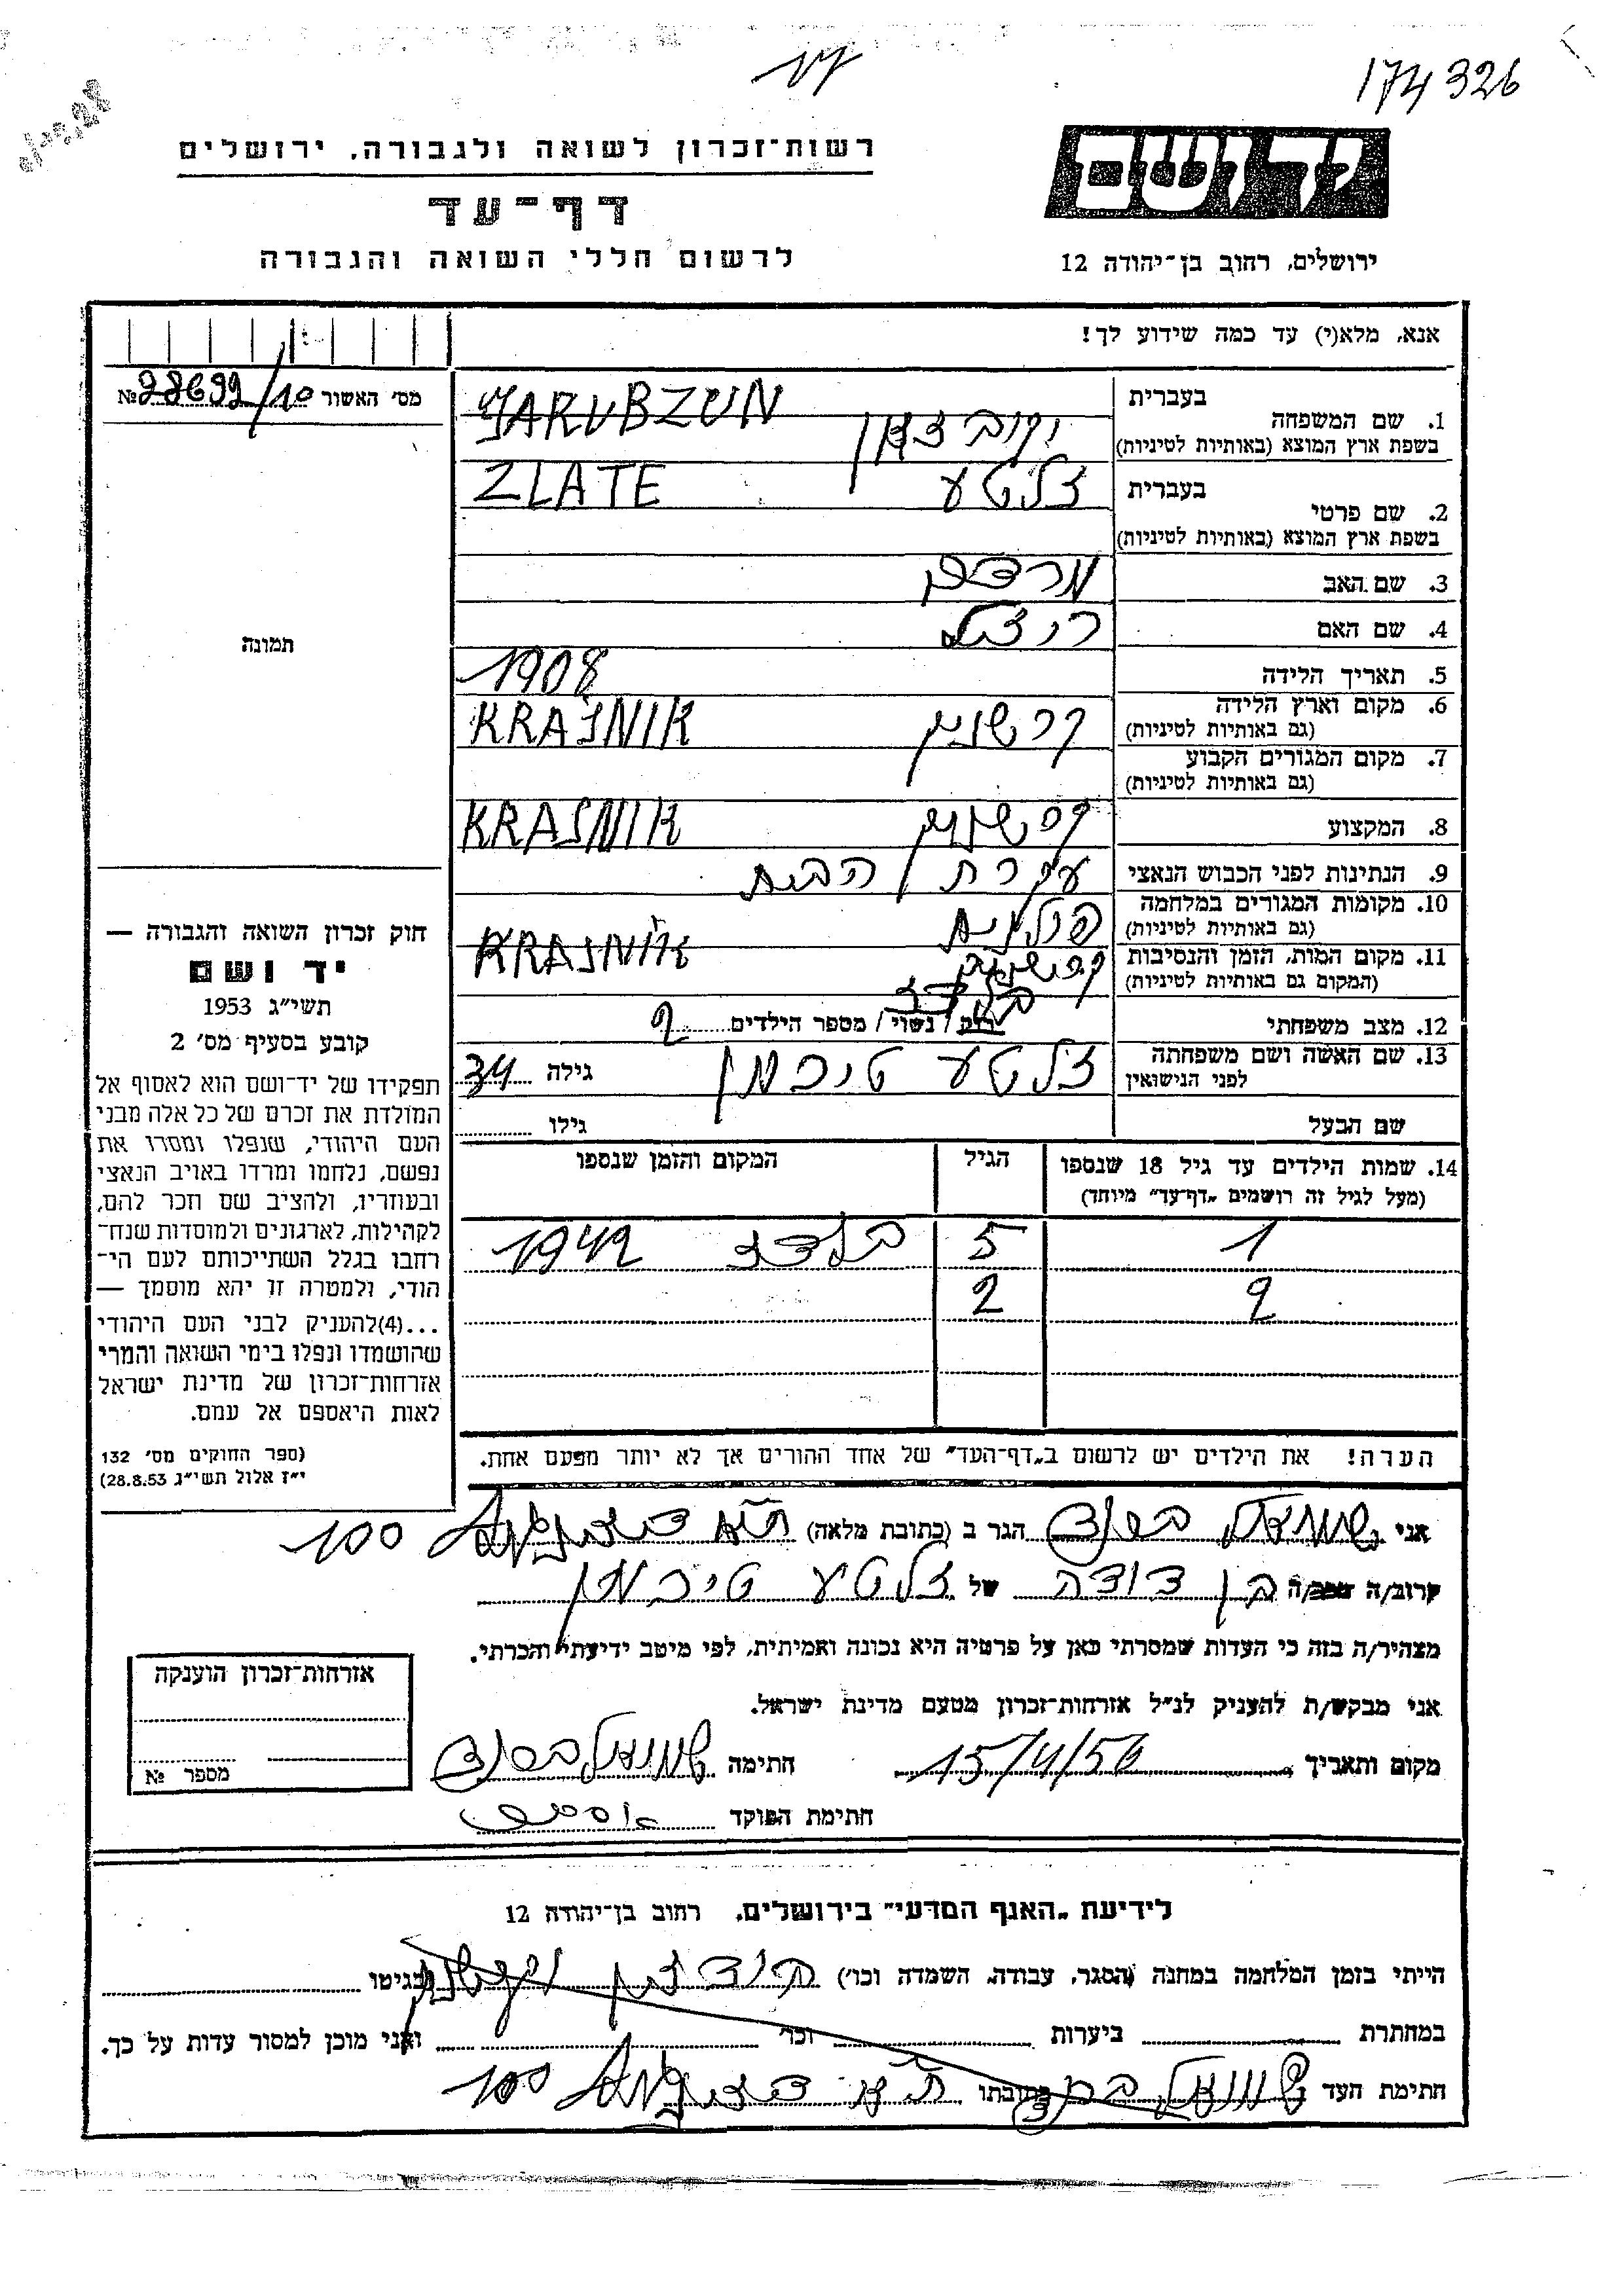 174326
רשות־זכרון לשואה ולגבורה, ירושלים
יד ושם
דף־עד
לרשום חללי השואה והגבורה
ירושלים, רחוב בן־יהודה 12
אנא, מלא(י) עד כמה שידוע לך!
מס׳ האשור № 28699/10
בעברית
1. שם המשפחה
בשפת ארץ המוצא (באותיות לטיניות)
JAKUBZUN
בעברית צלטע ZLATE
2. שם פרטי
בשפת ארץ המוצא (באותיות לטיניות)
3. שם האב מרדכי
4. שם האם
5. תאריך הלידה 1908
6. מקום וארץ הלידה
(גם באותיות לטיניות) קרשניק KRAŚNIK
7. מקום המגורים הקבוע
(גם באותיות לטיניות)
8. המקצוע קרשניק KRAŚNIK
9. הנתינות לפני הכבוש הנאצי עקרת הבית
10. מקומות המגורים במלחמה
(גם באותיות לטיניות) פולנית
11. מקום המות, הזמן והנסיבות
(המקום גם באותיות לטיניות) קרשניק KRAŚNIK
בלזץ
12. מצב משפחתי רוק / נשוי / מספר הילדים 2
13. שם האשה ושם משפחתה
לפני הנישואין צלטע טיכמן גילה 34
שם הבעל גילו
14. שמות הילדים עד גיל 18 שנספו הגיל המקום והזמן שנספו
(מעל לגיל זה רושמים „דף־עד״ מיוחד)
1 5 1942
2 2
הערה! את הילדים יש לרשום ב„דף־העד״ של אחד ההורים אך לא יותר מפעם אחת.
תמונה
חוק זכרון השואה והגבורה —
יד ושם
תשי״ג 1953
קובע בסעיף מס׳ 2
תפקידו של יד־ושם הוא לאסוף אל
המולדת את זכרם של כל אלה מבני
העם היהודי, שנפלו ומסרו את
נפשם, נלחמו ומרדו באויב הנאצי
ובעוזריו, ולהציב שם וזכר להם,
לקהילות, לארגונים ולמוסדות שנח־
רבו בגלל השתייכותם לעם הי־
הודי, ולמטרה זו יהא מוסמך —
...(4)להעניק לבני העם היהודי
שהושמדו ונפלו בימי השואה והמרי
אזרחות־זכרון של מדינת ישראל
לאות היאספם אל עמם.
(ספר החוקים מס׳ 132
י״ז אלול תשי״ג 28.8.53)
אני שמואל הגר ב (כתובת מלאה) ת״א 100
קרוב/ה מכר/ה בן דודה של צלטע טיכמן
מצהיר/ה בזה כי העדות שמסרתי כאן על פרטיה היא נכונה ואמיתית, לפי מיטב ידיעתי והכרתי.
אני מבקש/ת להעניק לנ״ל אזרחות־זכרון מטעם מדינת ישראל.
מקום ותאריך 15/4/56 חתימה
חתימת הפוקד
אזרחות־זכרון הוענקה
מספר №
לידיעת „האגף המדעי״ בירושלים, רחוב בן־יהודה 12
הייתי בזמן המלחמה במחנה (הסגר, עבודה, השמדה וכו׳) בגיטו
במחתרת ביערות וכו׳ ואני מוכן למסור עדות על כך.
חתימת העד שמואל כתובתו ת״א 100